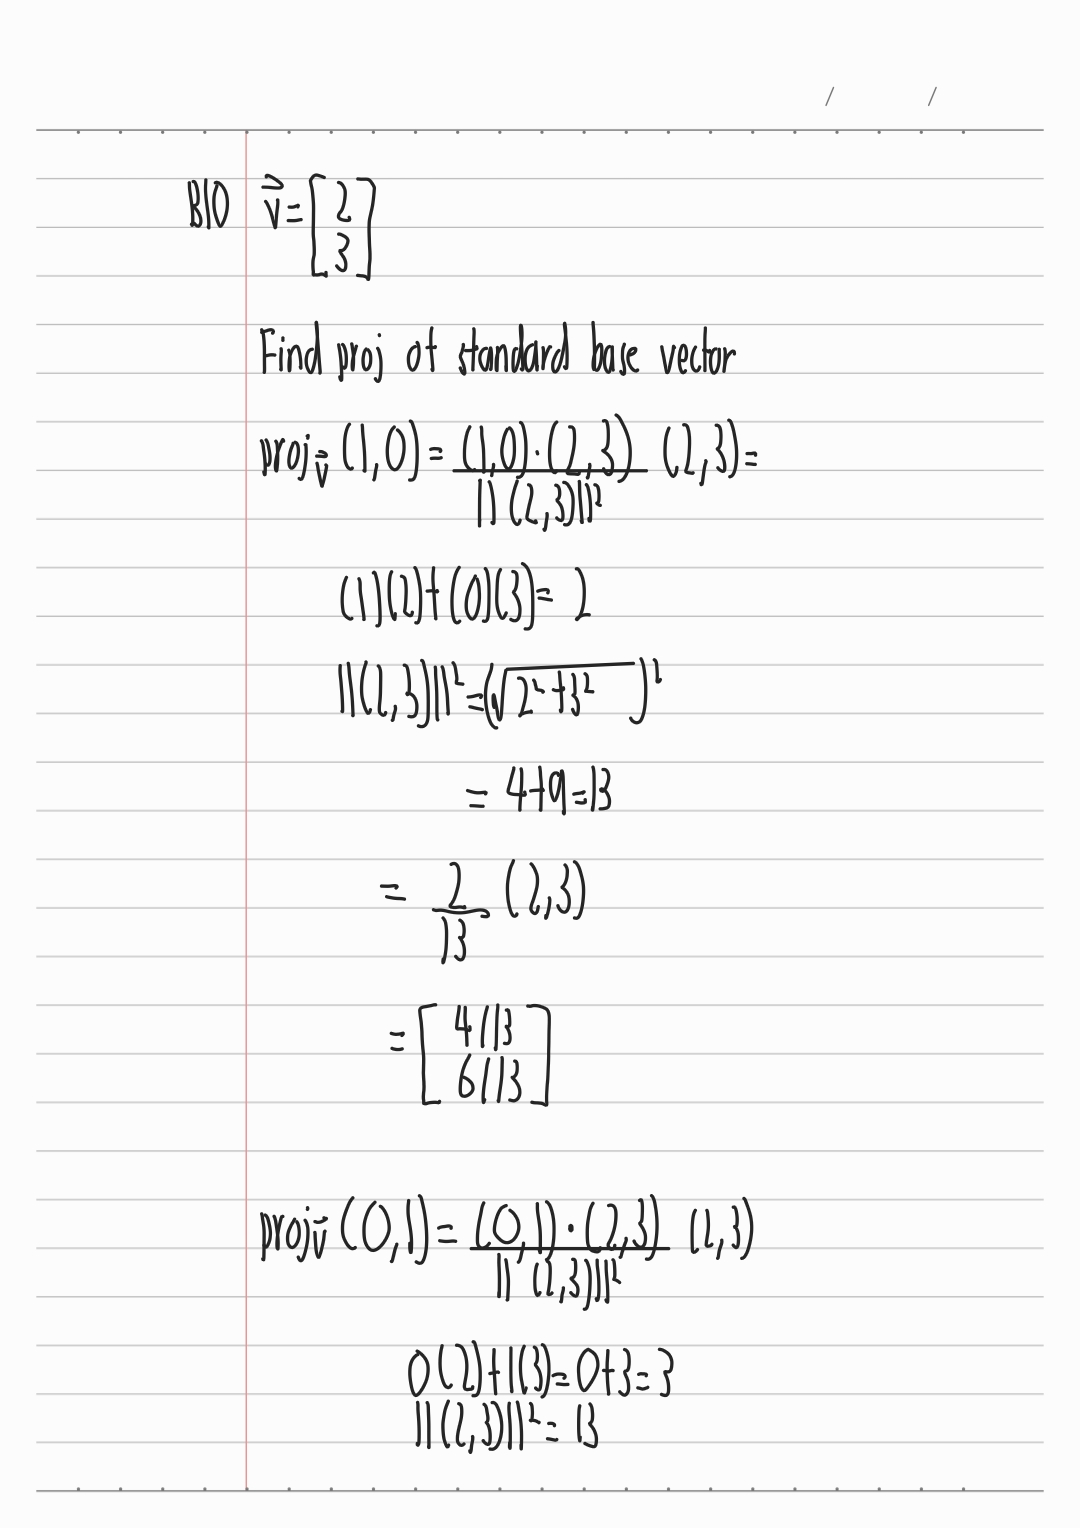 / /
B10 v⃗ = [2 3]
Find proj of standard base vector
proj_v⃗ (1,0) = (1,0)·(2,3) / ||(2,3)||² (2,3) =
(1)(2)+(0)(3) = 2
||(2,3)||² = (√(2²+3²))²
= 4+9=13
= 2/13 (2,3)
= [4/13 6/13]
proj_v⃗ (0,1) = (0,1)·(2,3) / ||(2,3)||² (2,3)
0(2)+1(3)=0+3=3
||(2,3)||² = 13